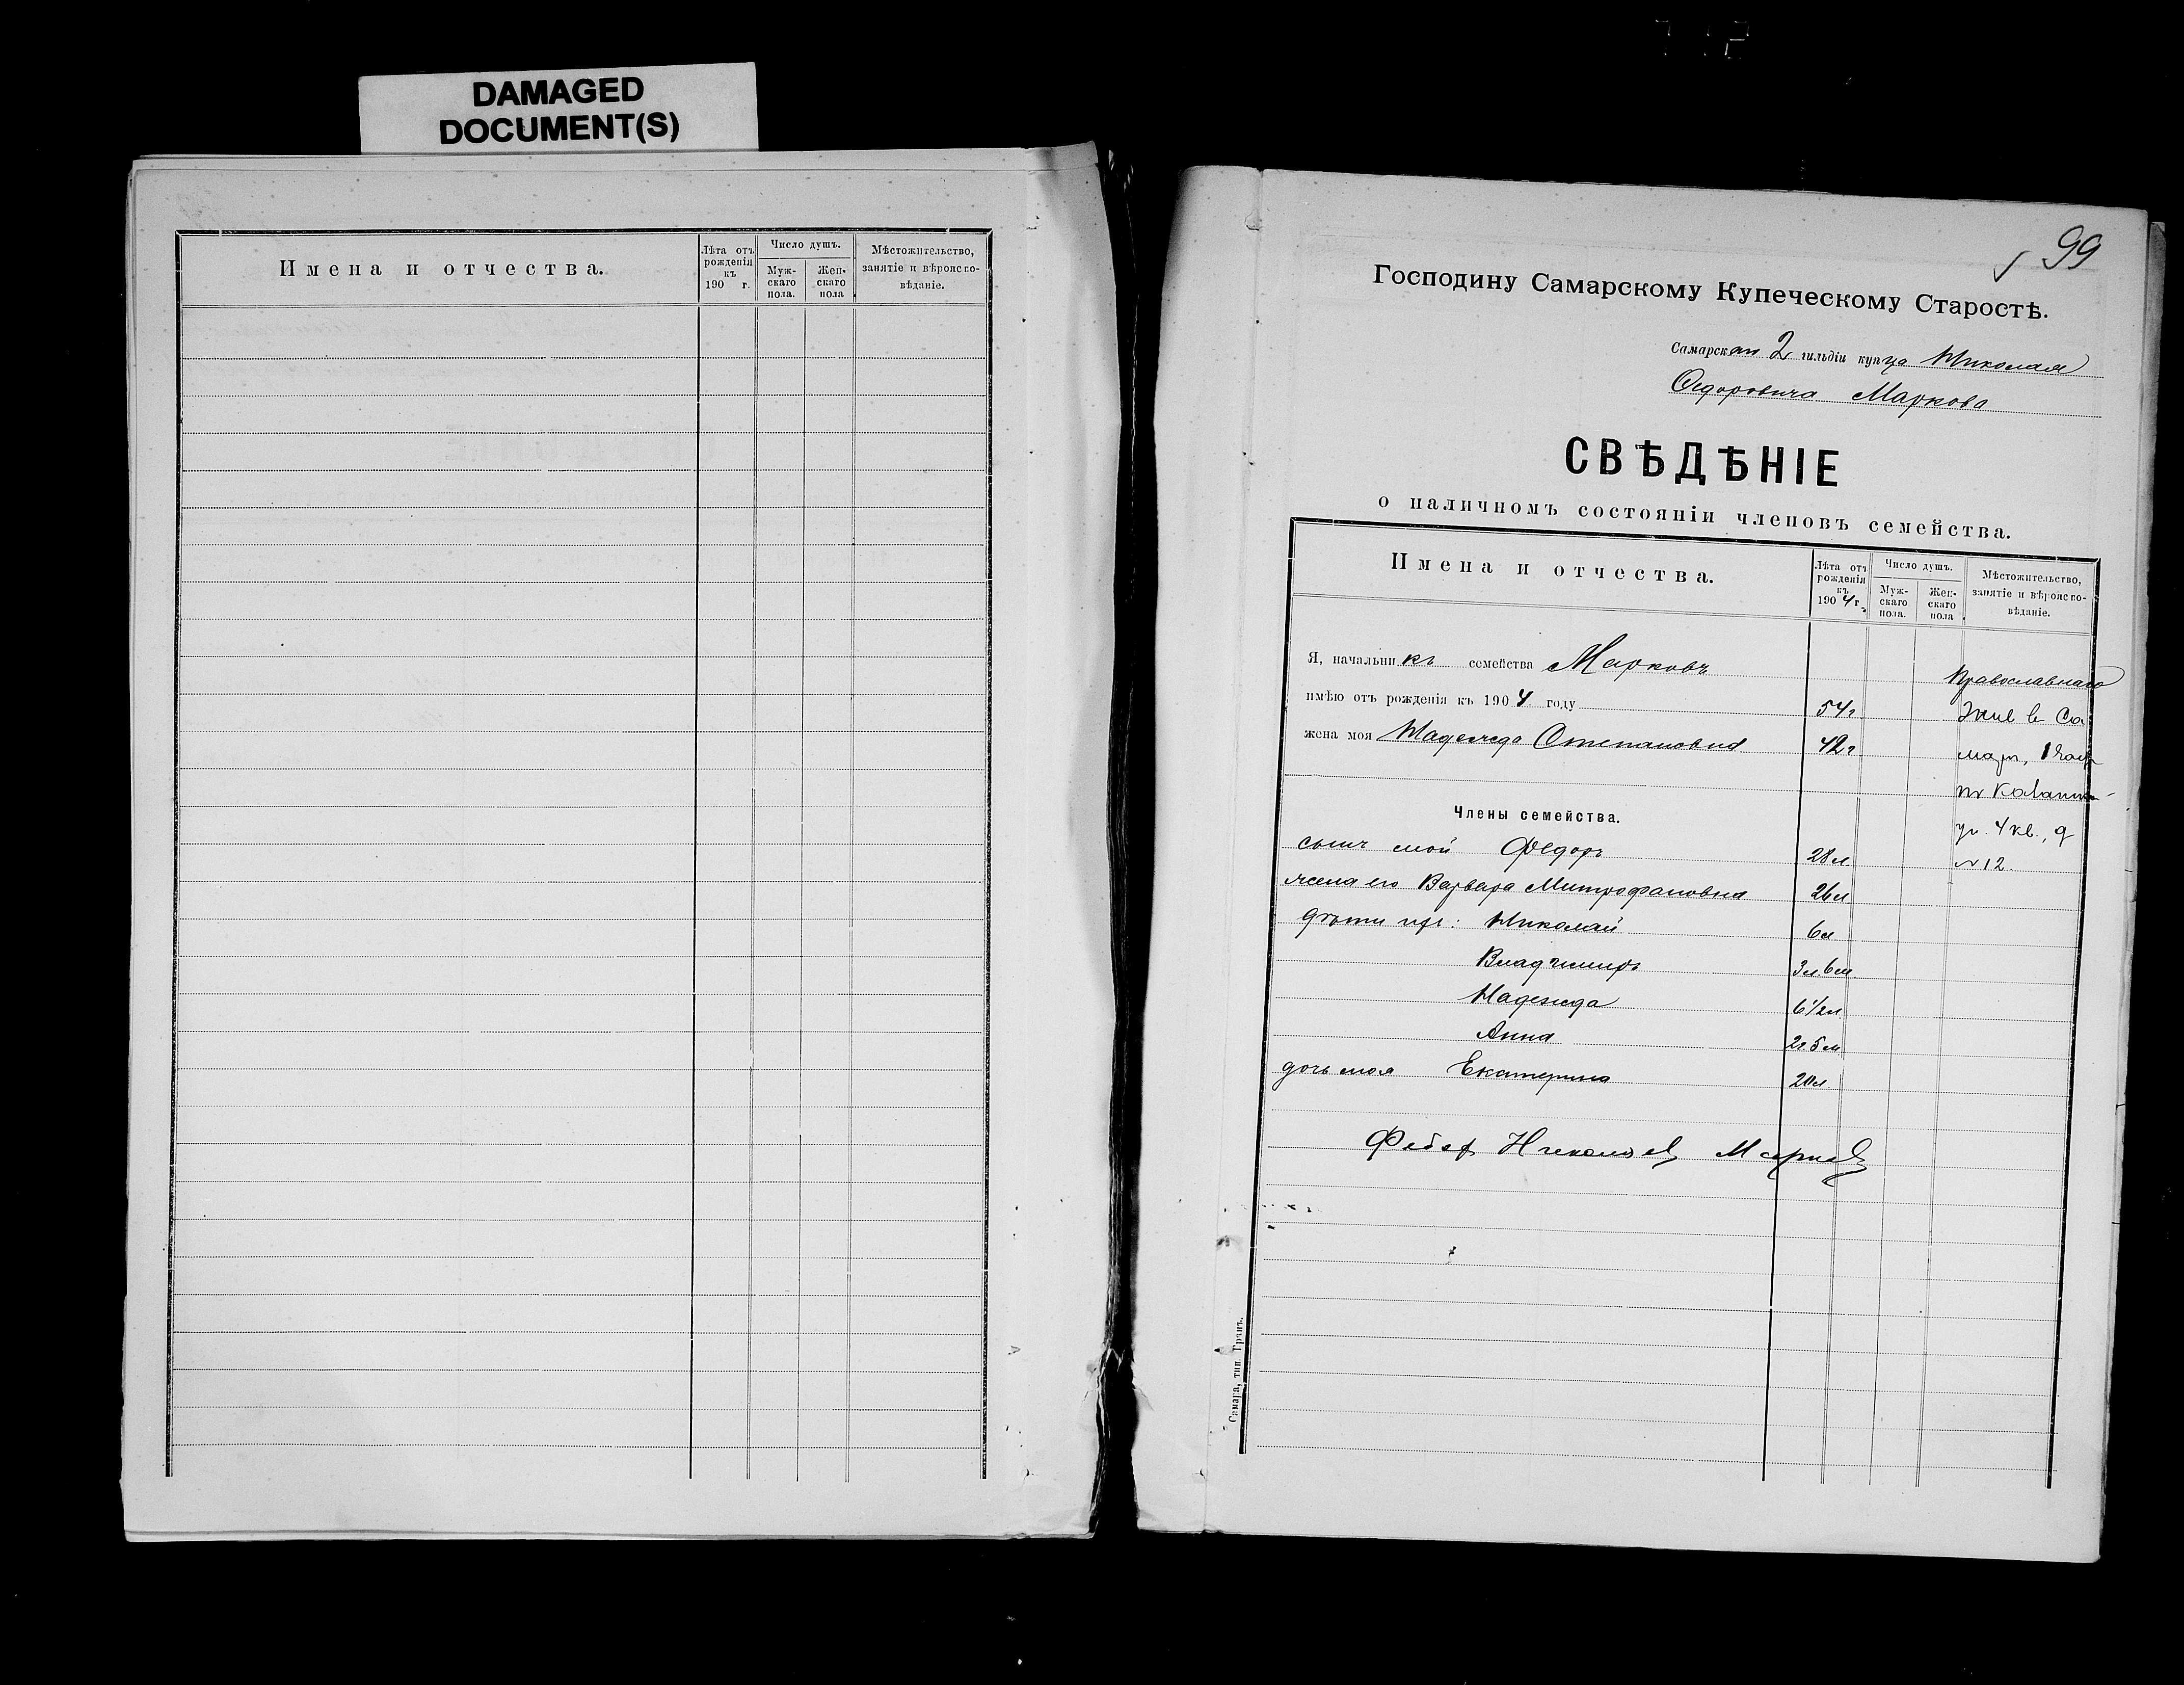 DAMAGED
DOCUMENT(S)
Имена и отчества.
Лѣта отъ рожденія къ 190 г.
Число душъ.
Мужскаго пола.
Женскаго пола
Мѣстожительство, занятіе и вѣроисповѣданіе.
99
Господину Самарскому Купеческому Старостѣ.
Самарскаго 2 гильдіи купца Николая
Ѳедоровича Маркова
СВѢДѢНІЕ
о наличномъ состояніи членовъ семейства.
Имена и отчества.
Лѣта отъ рожденія къ 1904 г.
Число душъ.
Мужскаго пола.
Женскаго пола
Мѣстожительство, занятіе и вѣроисповѣданіе.
Я, начальникъ семейства Марковъ
Православнаго
имѣю отъ рожденія къ 1904 году 54 г
Жив в Са
жена моя Надежда Степановна 42 г
мар, 1 част
по Казанск
Члены семейства.
ул. 4 кв., д
сынъ мой Федоръ 28 л
№ 12.
жена его Варвара Митрофановна 26 л
дѣти ихъ: Николай 6 л
Владимиръ 3 л 6 м
Надежда 6 1/2 л
Анна 2 г 5 м
дочь моя Екатерина 20 л
Федор Николаев Марков
Самара, тип. Грань.